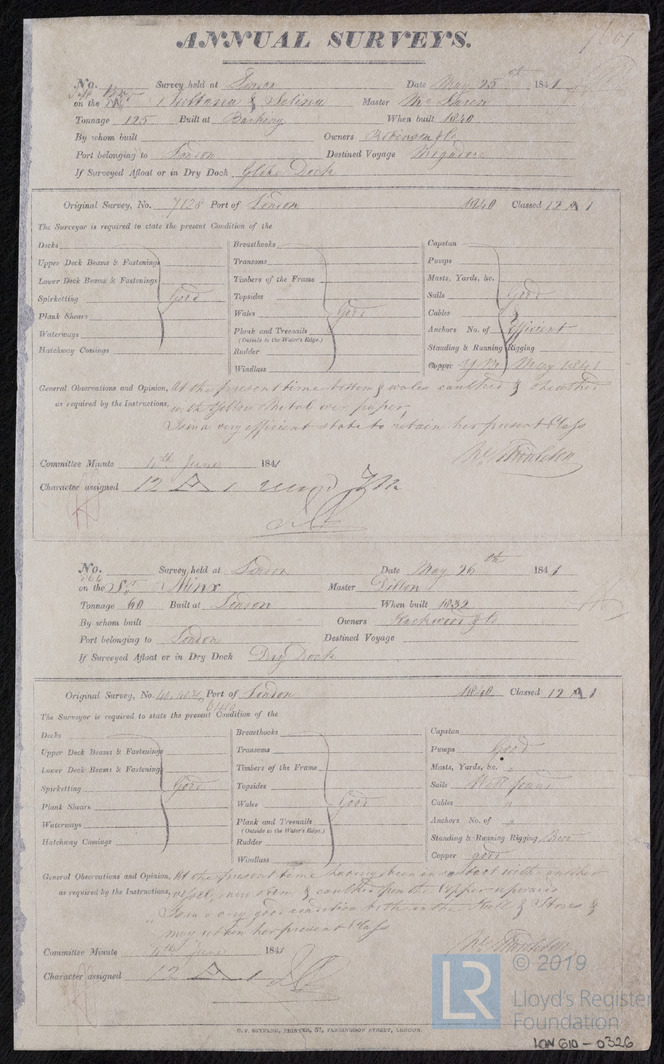 ANNUAL SURVEYS.
No. Survey held at London Date May 25th 1841
on the & Selina Master
Tonnage 125 Built at Barking When built 1840
By whom built Owners Robinson & Co
Port belonging to London Destined Voyage
If Surveyed Afloat or in Dry Dock Globe Dock
Original Survey, No. 7128 Port of London 1840 Classed 12 A 1
The Surveyor is required to state the present Condition of the
Decks Breasthooks Capstan
Upper Deck Beams & Fastenings Transoms Pumps
Lower Deck Beams & Fastenings Timbers of the Frame Masts, Yards, &c.
Spirketting Good Topsides Sails Good
Plank Shears Wales Good Cables
Waterways Plank and Treenails Anchors No. of Efficient
(Outside to the Water's Edge.) Standing & Running Rigging
Hatchway Comings Rudder
Windlass Copper Y.M. May 1841
General Observations and Opinion, At the present time bottom & wales caulked & sheathed
as required by the Instructions, with Yellow Metal over paper,
Is in a very efficient state to retain her present Class
Committee Minute 4th June 1841
Character assigned 12 A 1
No. Survey held at London Date May 26th 1841
on the Sr Minx Master Dillon
Tonnage 60 Built at London When built 1832
By whom built Owners & Co
Port belonging to London Destined Voyage
If Surveyed Afloat or in Dry Dock Dry Dock
Original Survey, No. Port of London 1840 Classed 12 A 1
The Surveyor is required to state the present Condition of the
Decks Breasthooks Capstan
Upper Deck Beams & Fastenings Transoms Pumps Good
Lower Deck Beams & Fastenings Timbers of the Frame Masts, Yards, &c. "
Spirketting Good Topsides Sails Well found
Plank Shears Wales Good Cables "
Waterways Plank and Treenails Anchors No. of "
(Outside to the Water's Edge.)
Hatchway Comings Rudder Standing & Running Rigging
Windlass Copper good
General Observations and Opinion, At the present time having been in contact with another
as required by the Instructions, vessel, new stem & caulked from the Copper upwards
Is in a very good condition both in the Hull & Stores &
may retain her present Class
Committee Minute 4th June 1841
Character assigned 12 A 1
LONDON.
LR
© 2019
Lloyd's Register
Foundation
LON 610-0326